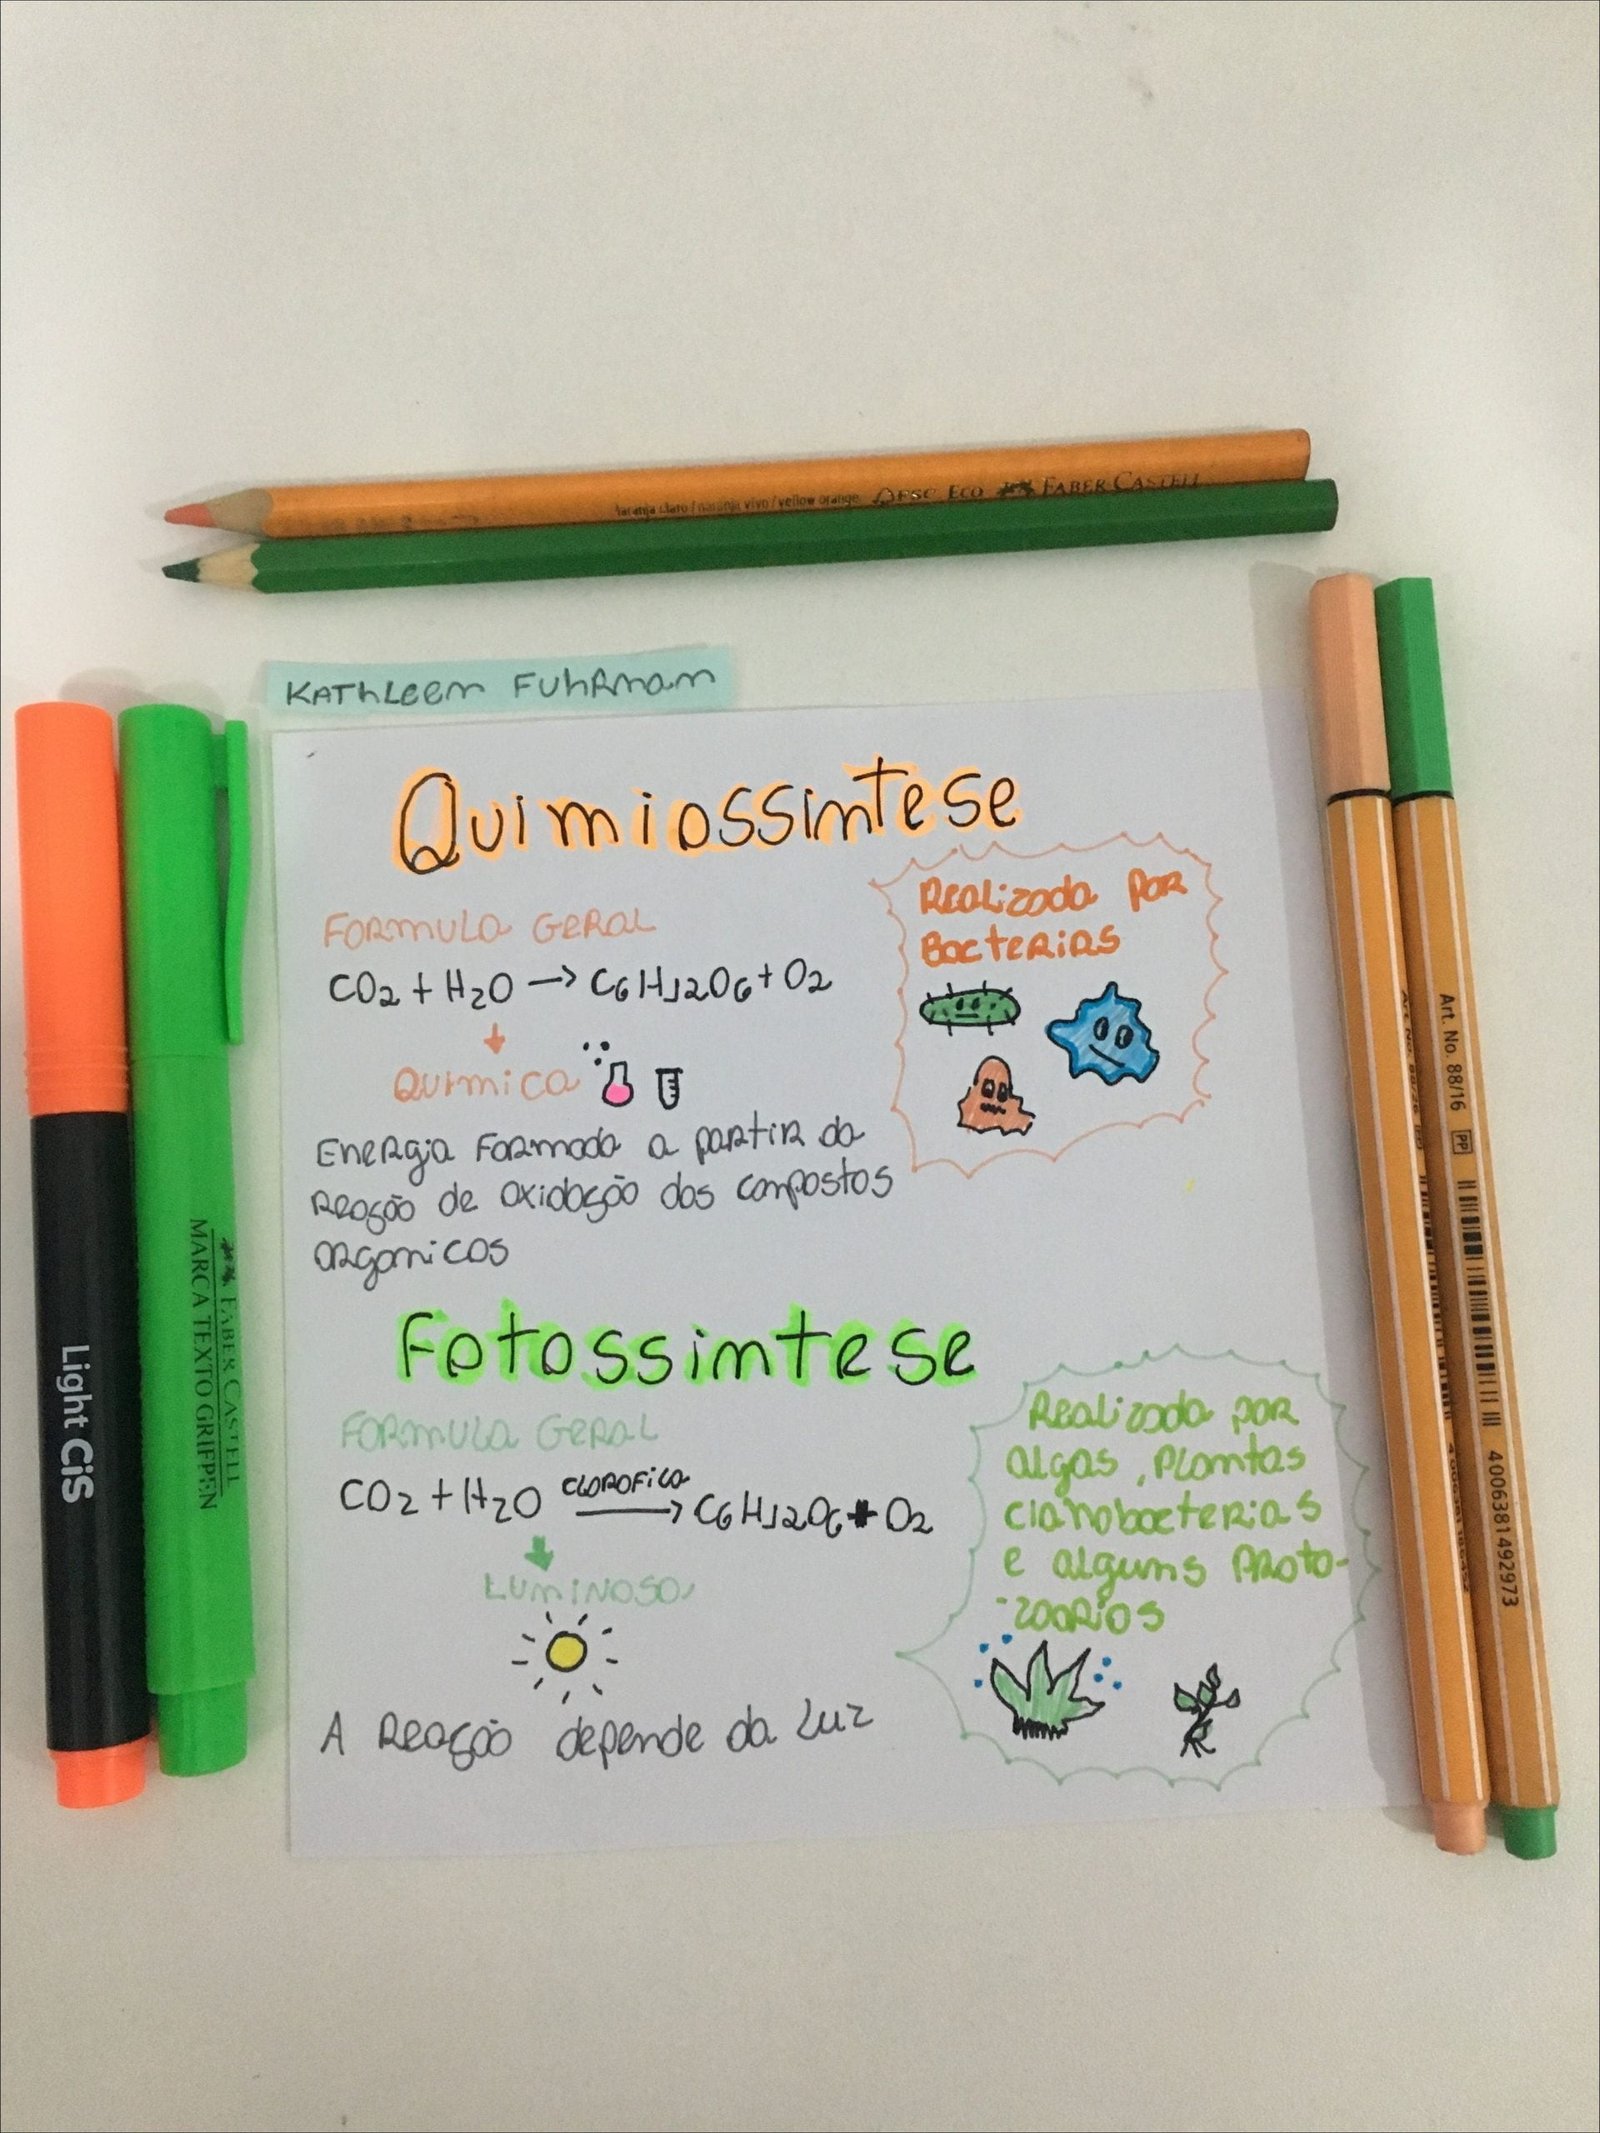 laranja claro / naranja vivo / yellow orange FSC ECO FABER-CASTELL
KATHLEEN FUHRMAN
Quimiossintese
FORMULA GERAL
CO2 + H2O → C6H12O6 + O2
QUIMICA
Energia Formada a partir da
Reação de oxidação dos compostos
organicos
Realizada por
Bacterias
Fotossintese
FORMULA GERAL
CO2 + H2O CLOROFILA → C6H12O6 + O2
LUMINOSA
A Reação depende da Luz
Realizada por
algas, Plantas
cianobacterias
e alguns Proto-
-zoarios
Light CiS
FABER-CASTELL
MARCA TEXTO GRIFPEN
Art. No. 88/16 PP
4006381492973